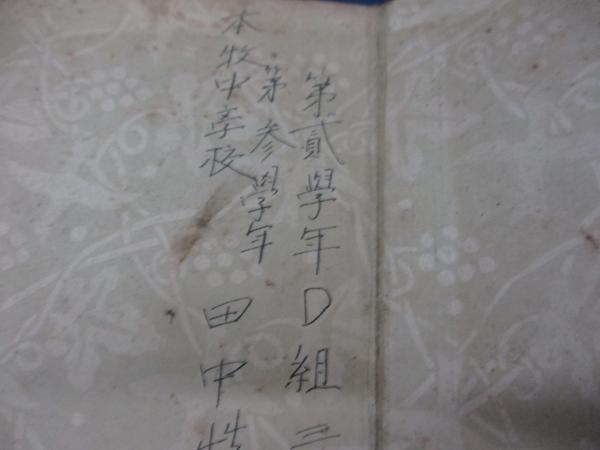 第貳學年D組三
第参學年
本牧中学校
田中